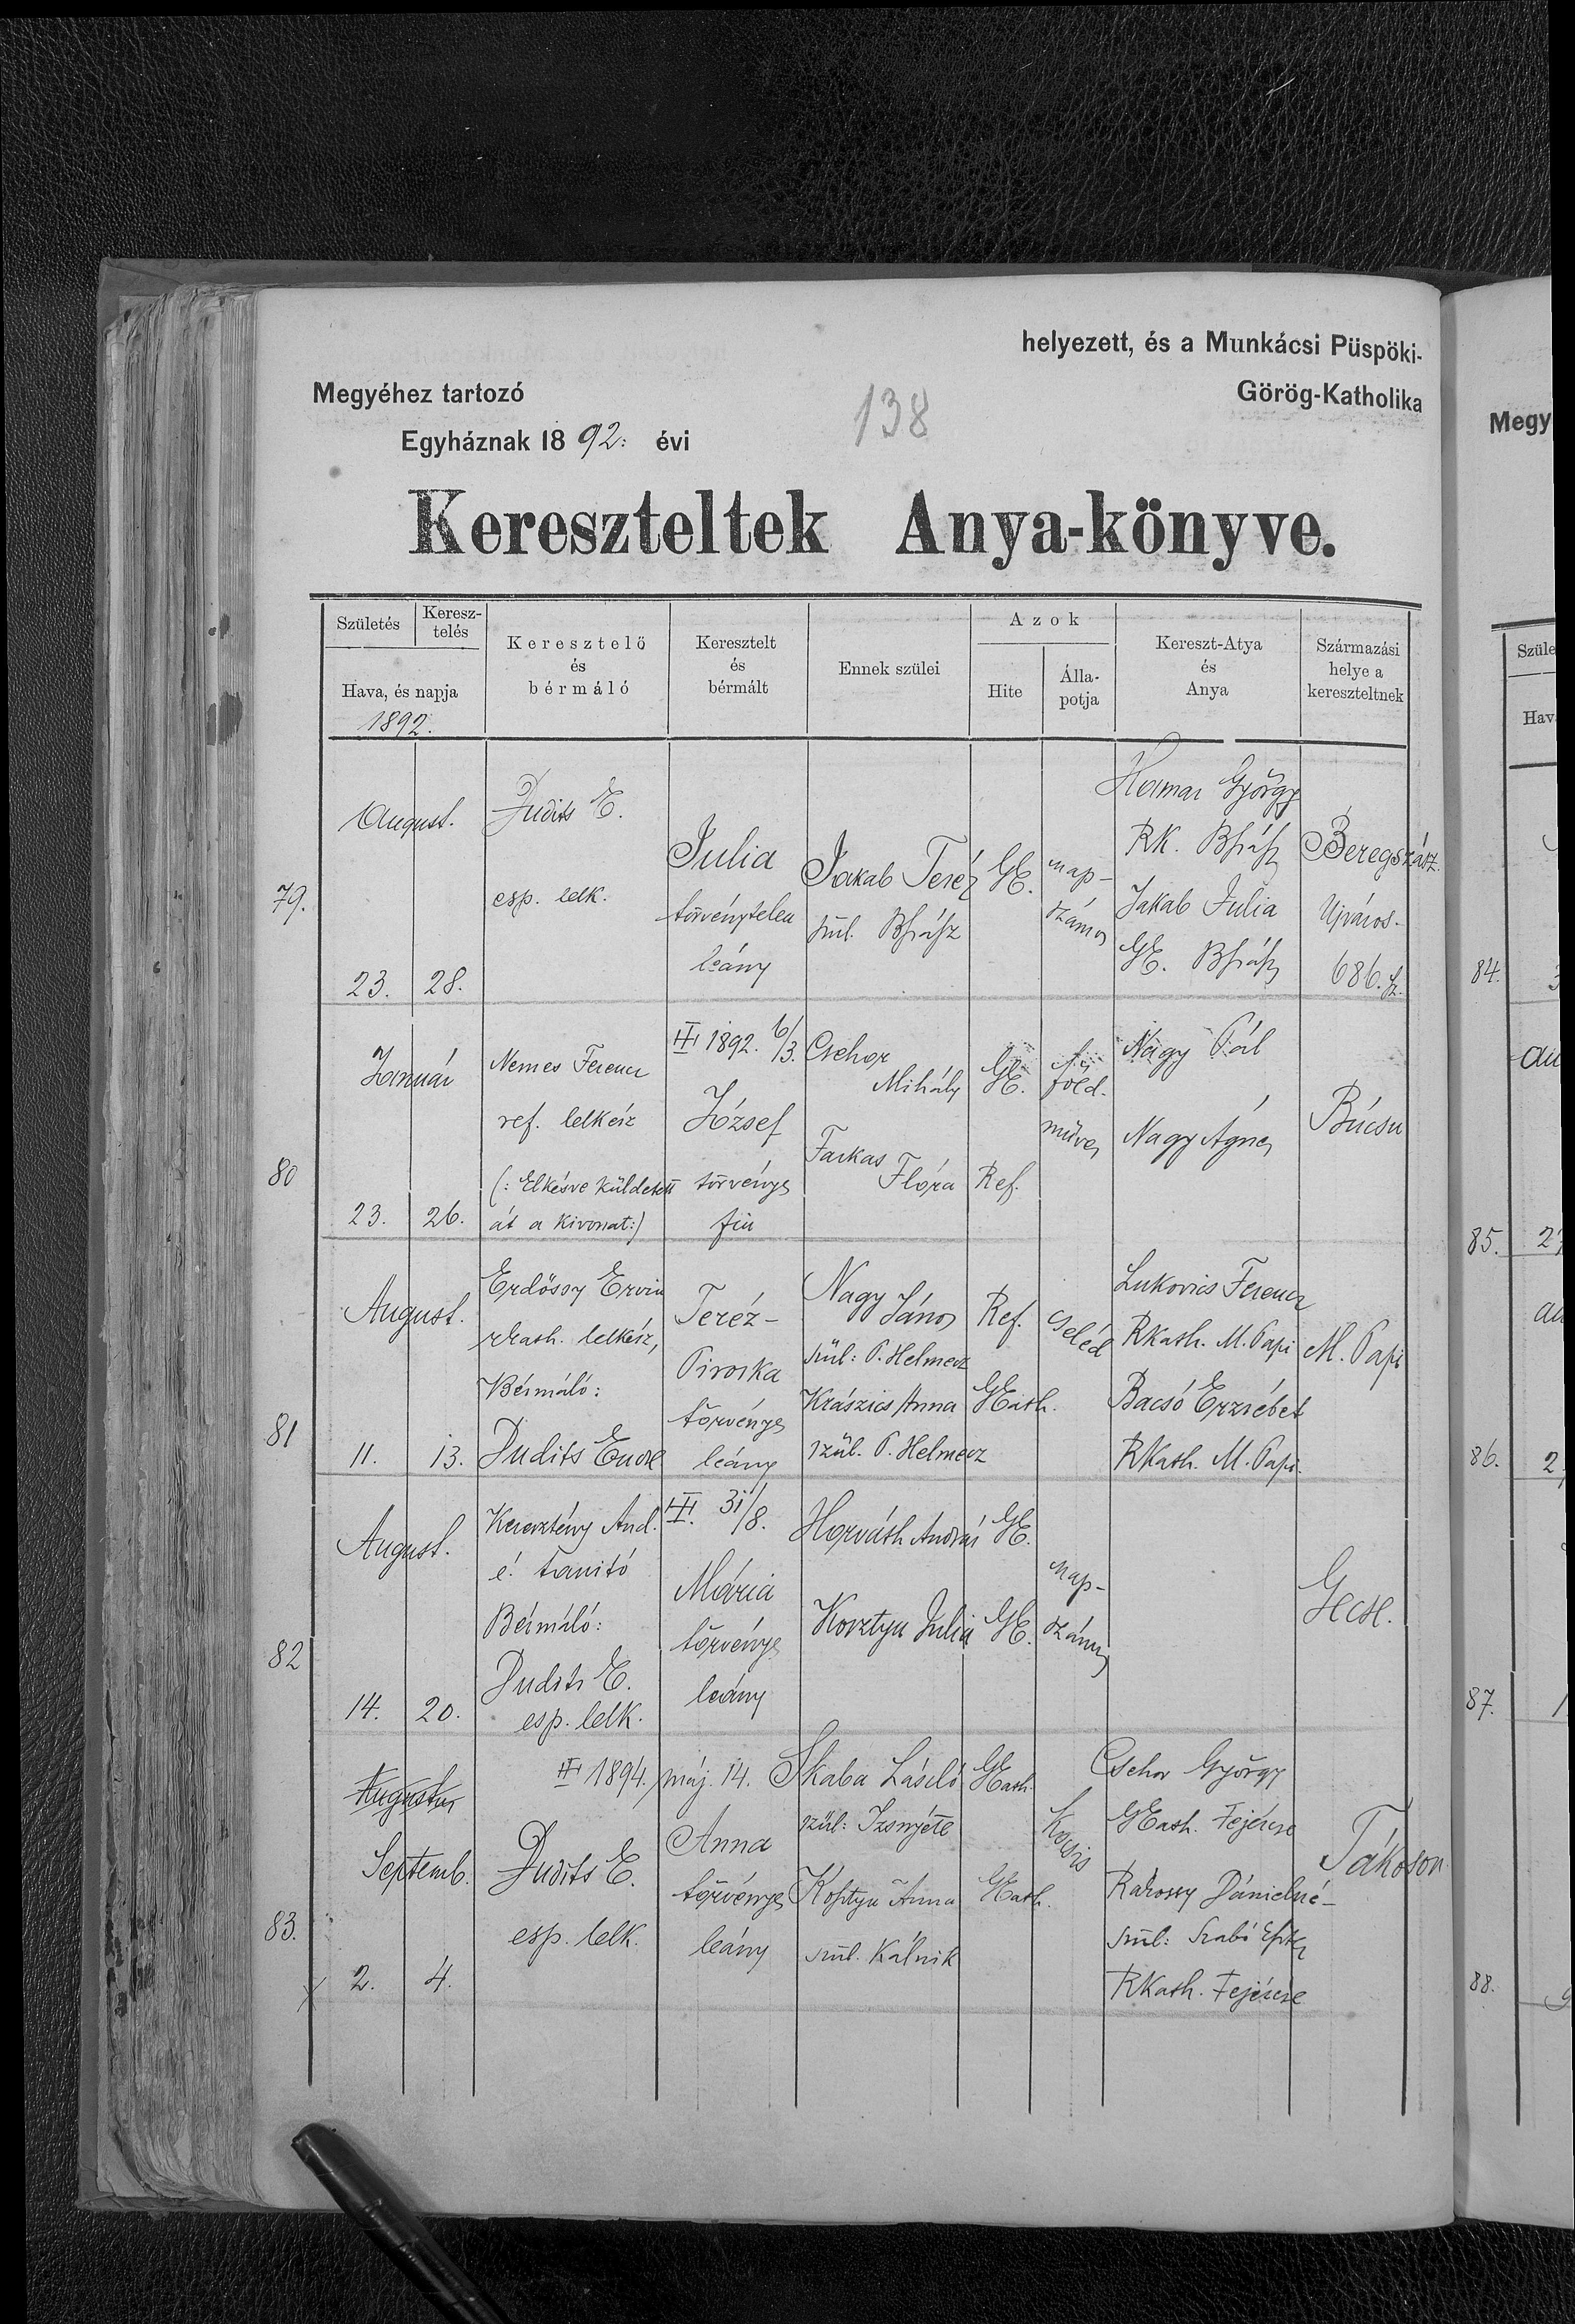 helyezett, és a Munkácsi Püspöki-
Megyéhez tartozó
138
Görög-Katholika
Egyháznak 1892: évi
Kereszteltek Anya-könyve.
Születés
Keresz-
telés
Hava, és napja
1892.
Keresztelő
és
bérmáló
Keresztelt
és
bérmált
Ennek szülei
Azok
Hite
Álla-
potja
Kereszt-Atya
és
Anya
Származási
helye a
kereszteltnek
79.
August.
23. 28.
Dudits E.
esp. lelk.
Julia
törvénytelen
leány
Jakab Teréz
szül. Bszász
GK.
nap-
számos
György
RK. Bszász
Jakab Julia
GK. Bszász
Beregszász.
Ujváros.
686. sz.
80
Január
23. 26.
Nemes Ferencz
ref. lelkész
(: Elkésve küldetett
át a kivonat:)
1892. 6/3.
József
törvényes
fiu
Csehor
Mihály
Farkas
Flóra
GK.
Ref.
föld-
műves
Nagy Pál
Nagy Ágnes
Búcsu
81
August.
11. 13.
Erdőssy Ervin
rkath. lelkész,
Bérmáló:
Dudits Endre
Teréz-
Piroska
törvényes
leány
Nagy János
szül: P. Helmecz
Krászics Anna
szül. P. Helmecz
Ref.
GKath.
cseléd
Lukovics Ferencz
RKath. M. Papi
Bacsó Erzsébet
RKath. M. Papi.
M. Papi
82
August.
14. 20.
Keresztény And.
é. tanitó
Bérmáló:
Dudits E.
esp. lelk.
31/8.
Mária
törvényes
leány
Horváth András
Kosztyu Julia
GK.
GK.
nap-
számos
Gecse.
83.
Augustus
Septemb.
2. 4.
1894. máj. 14.
Dudits E.
esp. lelk.
Anna
törvényes
leány
Skaba László
szül: Izsnyéte
Kosztyu Anna
szül. Kálnik
GKath.
GKath.
Kocsis
Csehor György
GKath. Fejércse
Dánielné-
szül: Szabó Eszter
RKath. Fejércse
Tákoson
Megy
Szüle
Hav
84.
85.
86.
87.
88.